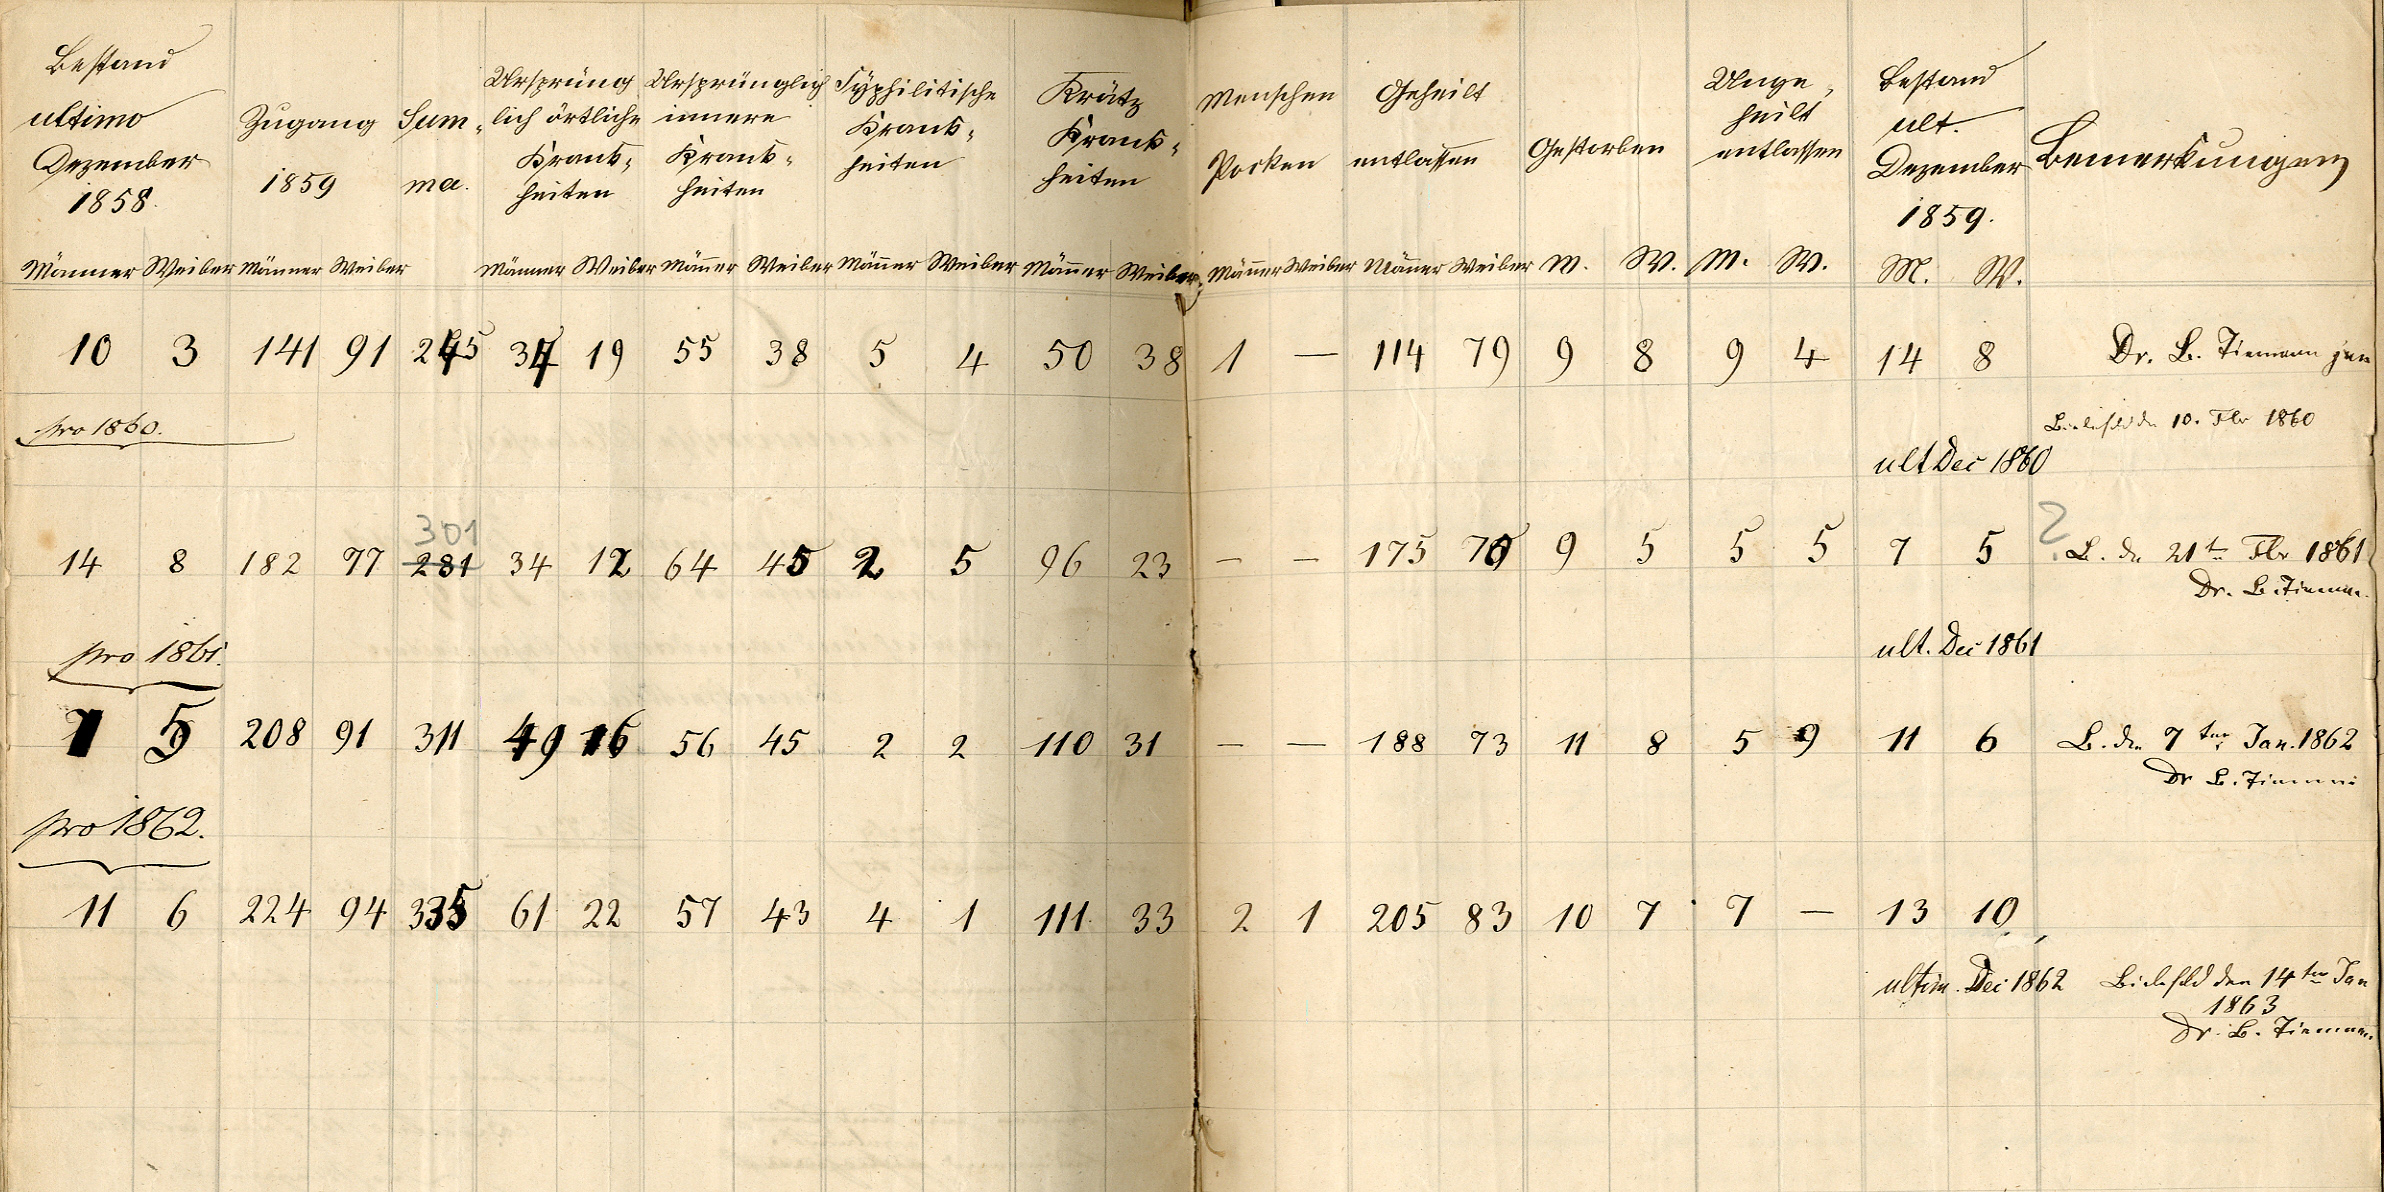 Bestand ultimo Dezember 1858.
Zugang 1859
Sum-ma.
Ursprünglich örtliche Krank-heiten
Ursprünglich innere Krank-heiten
Syphilitische Krank-heiten
Krätz Krank-heiten
Menschen Pocken
Geheilt entlassen
Gestorben
Unge-heilt entlassen
Bestand ult. Dezember 1859.
Bemerkungen
Männer Weiber Männer Weiber Männer Weiber Männer Weiber Männer Weiber Männer Weiber Männer Weiber Männer Weiber M. W. M. W. M. W.
10 3 141 91 245 34 19 55 38 5 4 50 38 1 — 114 79 9 8 9 4 14 8 Dr. B. Tiemann jun
pro 1860.
Bielefeld den 10. Fbr 1860
ult Dec 1860
301
14 8 182 77 281 34 12 64 45 2 5 96 23 — — 175 70 9 5 5 5 7 5 ? B. den 21ten Fbr 1861
Dr. B. Tiemann
pro 1861.
ult. Dec 1861
7 5 208 91 311 49 16 56 45 2 2 110 31 — — 188 73 11 8 5 9 11 6 B. den 7ten Jan. 1862
Dr B. Tiemann
pro 1862.
11 6 224 94 335 61 22 57 43 4 1 111 33 2 1 205 83 10 7 7 — 13 10
ultim. Dec 1862 Bielefeld den 14ten Jan
1863
Dr. B. Tiemann